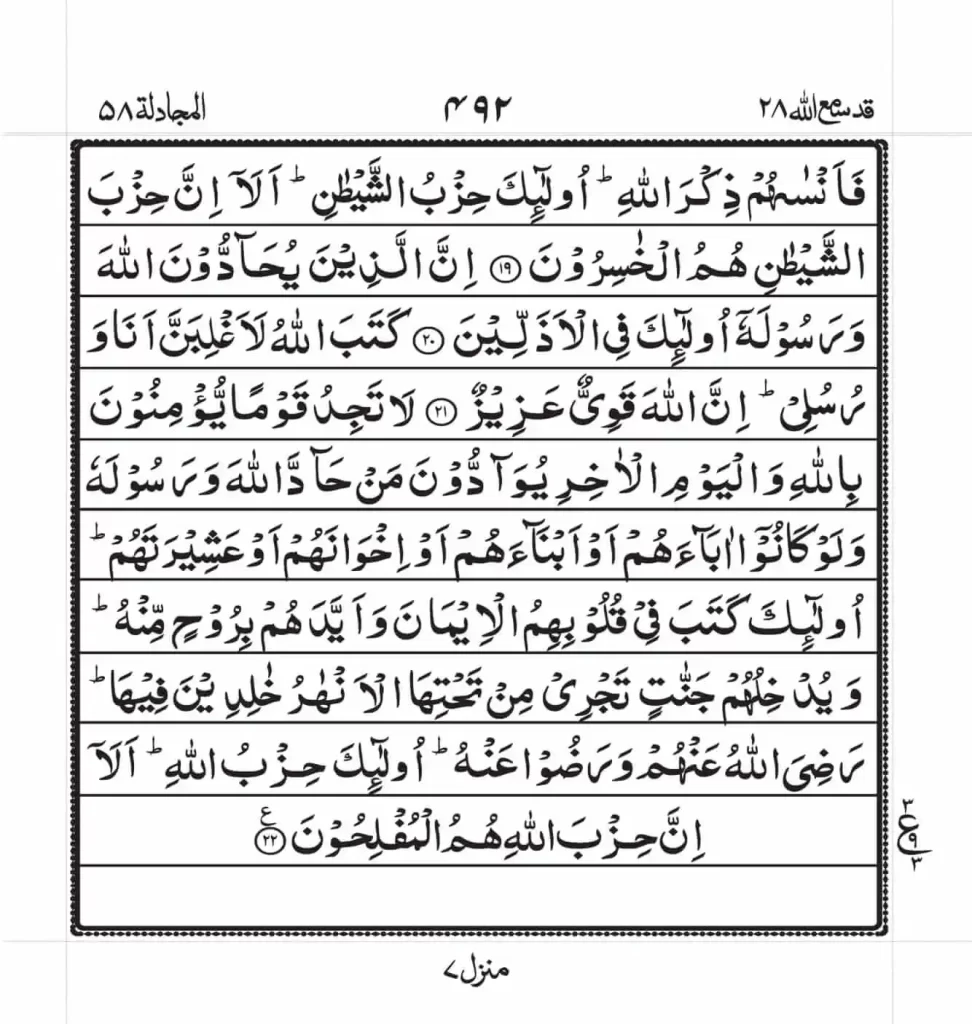 قد سمع الله ۲۸
۴۹۲
المجادلة ۵۸
فَاَنْسٰىهُمْ ذِكْرَ اللّٰهِ ؕ اُولٰٓئِكَ حِزْبُ الشَّيْطٰنِ ؕ اَلَاۤ اِنَّ حِزْبَ
الشَّيْطٰنِ هُمُ الْخٰسِرُوْنَ ۝۱۹ اِنَّ الَّذِيْنَ يُحَآدُّوْنَ اللّٰهَ
وَرَسُوْلَهٗۤ اُولٰٓئِكَ فِى الْاَذَلِّيْنَ ۝۲۰ كَتَبَ اللّٰهُ لَاَغْلِبَنَّ اَنَا وَ
رُسُلِىْ ؕ اِنَّ اللّٰهَ قَوِىٌّ عَزِيْزٌ ۝۲۱ لَا تَجِدُ قَوْمًا يُّؤْمِنُوْنَ
بِاللّٰهِ وَالْيَوْمِ الْاٰخِرِ يُوَآدُّوْنَ مَنْ حَآدَّ اللّٰهَ وَرَسُوْلَهٗ
وَلَوْ كَانُوْۤا اٰبَآءَهُمْ اَوْ اَبْنَآءَهُمْ اَوْ اِخْوَانَهُمْ اَوْ عَشِيْرَتَهُمْ ؕ
اُولٰٓئِكَ كَتَبَ فِىْ قُلُوْبِهِمُ الْاِيْمَانَ وَاَيَّدَهُمْ بِرُوْحٍ مِّنْهُ ؕ
وَيُدْخِلُهُمْ جَنّٰتٍ تَجْرِىْ مِنْ تَحْتِهَا الْاَنْهٰرُ خٰلِدِيْنَ فِيْهَا ؕ
رَضِىَ اللّٰهُ عَنْهُمْ وَرَضُوْا عَنْهُ ؕ اُولٰٓئِكَ حِزْبُ اللّٰهِ ؕ اَلَاۤ
اِنَّ حِزْبَ اللّٰهِ هُمُ الْمُفْلِحُوْنَ ۝۲۲ ع
۳
ع ۹
۳
منزل ۷